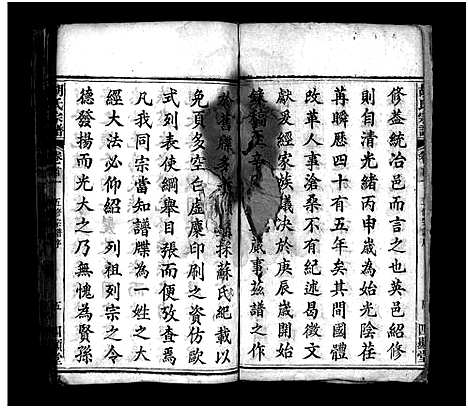 修益統治邑而言之也英邑紹修
則自清光緒丙申歲為始光陰荏
苒瞬歷四十有五年矣其間國體
改革人事滄桑不有紀述曷昭文
獻爰經家族議决於庚辰歲開始
歲事茲譜之作
採蘇氏紀載以
免頁多空白虛縻印刷之資仿歐
列表使綱舉目張而便攷查焉
凡我同宗當知譜牒為一姓之大
經大法必仰紹列祖列宗之令
德發揚而光大之乃無愧為賢孫
胡氏宗譜
卷首一 五修宗譜序
五 四顯堂